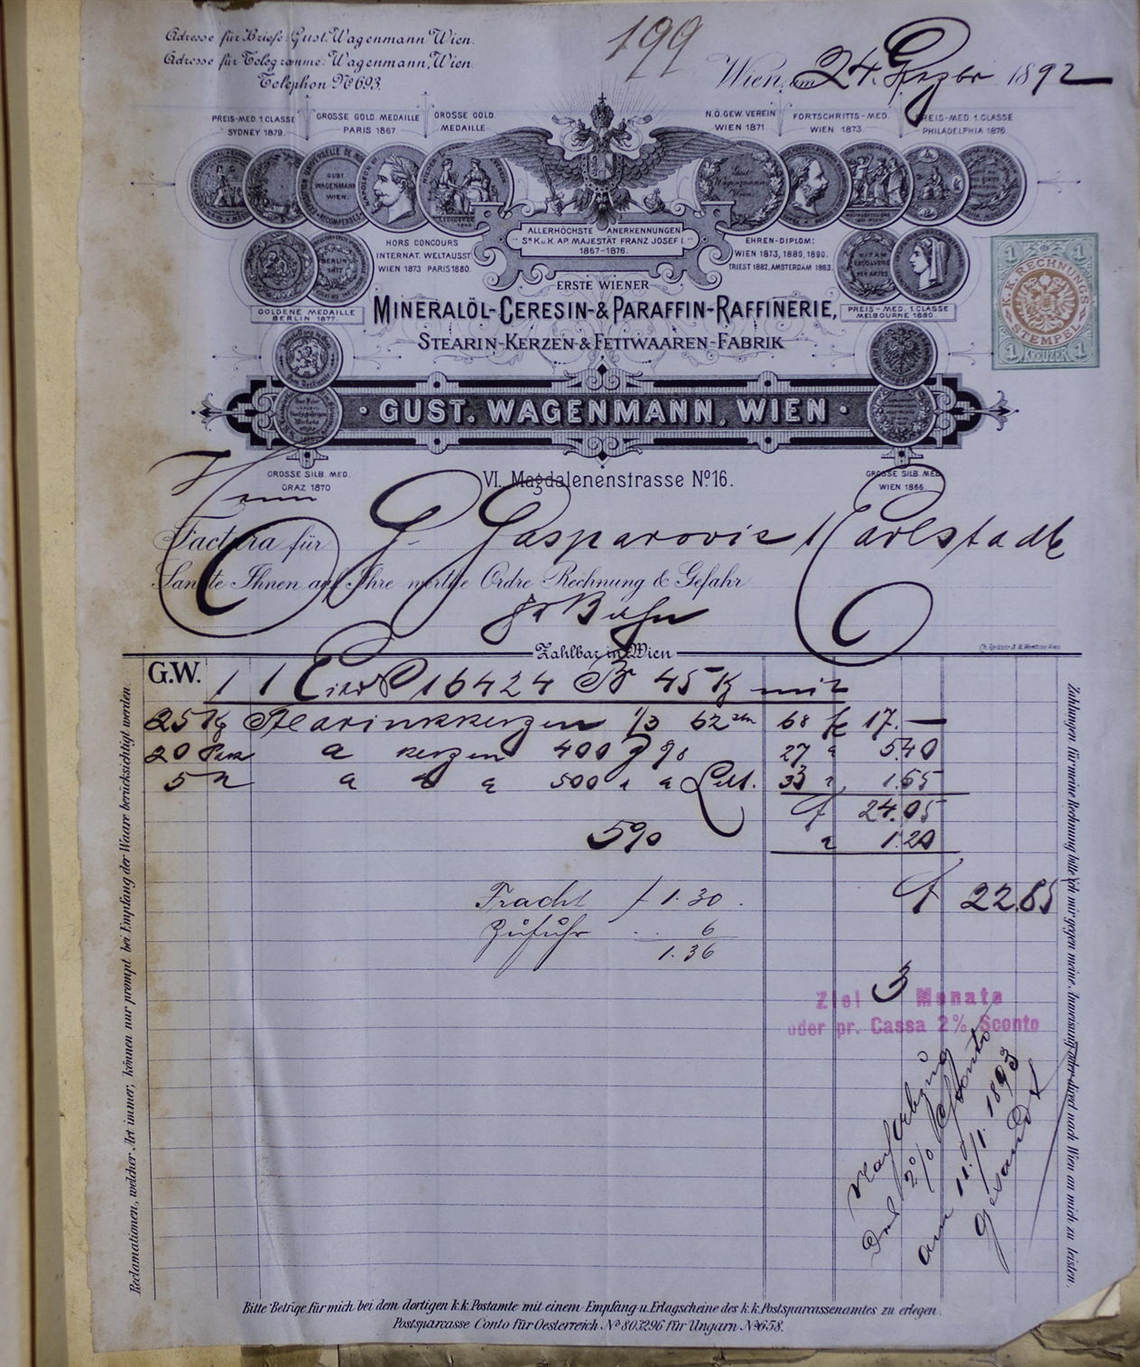 Adresse für Briefe: Gust. Wagenmann Wien.
Adresse für Telegramme: Wagenmann, Wien.
Telephon No 693.
199
Wien, am 24. Dezbr 1892
PREIS-MED. 1. CLASSE
SYDNEY 1879.
GROSSE GOLD. MEDAILLE
PARIS 1867
GROSSE GOLD.
MEDAILLE
N.Ö. GEW. VEREIN
WIEN 1871.
FORTSCHRITTS-MED.
WIEN 1873.
PREIS-MED. 1. CLASSE
PHILADELPHIA 1876.
GUST.
WAGENMANN
WIEN.
ALLERHÖCHSTE ANERKENNUNGEN
Sr K.u.K. AP. MAJESTÄT FRANZ JOSEF I.
1867-1876.
HORS CONCOURS
INTERNAT. WELTAUSST
WIEN 1873 PARIS 1880.
EHREN-DIPLOM:
WIEN 1873, 1880, 1890.
TRIEST 1882. AMSTERDAM 1883.
BERLIN
1877
GOLDENE MEDAILLE
BERLIN 1877.
PREIS-MED. 1. CLASSE
MELBOURNE 1880.
ERSTE WIENER
MINERALÖL-CERESIN-&PARAFFIN-RAFFINERIE,
STEARIN-KERZEN-&FETTWAAREN-FABRIK
1
K.K. RECHNUNGS
STEMPEL
1 KREUZER 1
· GUST. WAGENMANN, WIEN ·
GROSSE SILB. MED.
GRAZ 1870
VI. Magdalenenstrasse No 16.
GROSSE SILB. MED.
WIEN 1866
Herrn
Factura für G. Gasparovic Carlstadt
Sandte Ihnen auf Ihre werthe Ordre Rechnung & Gefahr
pr Bahn
Zahlbar in Wien
G.W. 1 1 16424 Br 45 Kg mit
25 Kg Stearinkerzen 1/3 62 68 fl 17.—
20 Pack a kerzen 400 g 98 27 " 5.40
5 " " " " 500 " " 33 " 1.65
fl 24.05
5% " 1.20
fl 22.85
Fracht f 1.30.
Zufuhr .. 6
1.36
Ziel 3 Monate
oder pr. Cassa 2% Sconto
2% Sconto
am 11./1. 1893
gesandt
Reclamationen, welcher Art immer, können nur prompt bei Empfang der Waare berücksichtigt werden.
Zahlungen für meine Rechnung bitte ich nur gegen meine Anweisung oder direct nach Wien an mich zu leisten.
Bitte Beträge für mich bei dem dortigen k.k. Postamte mit einem Empfang u. Erlagscheine des k.k. Postsparcassenamtes zu erlegen.
Postsparcasse Conto für Oesterreich No 803296 für Ungarn No 658.